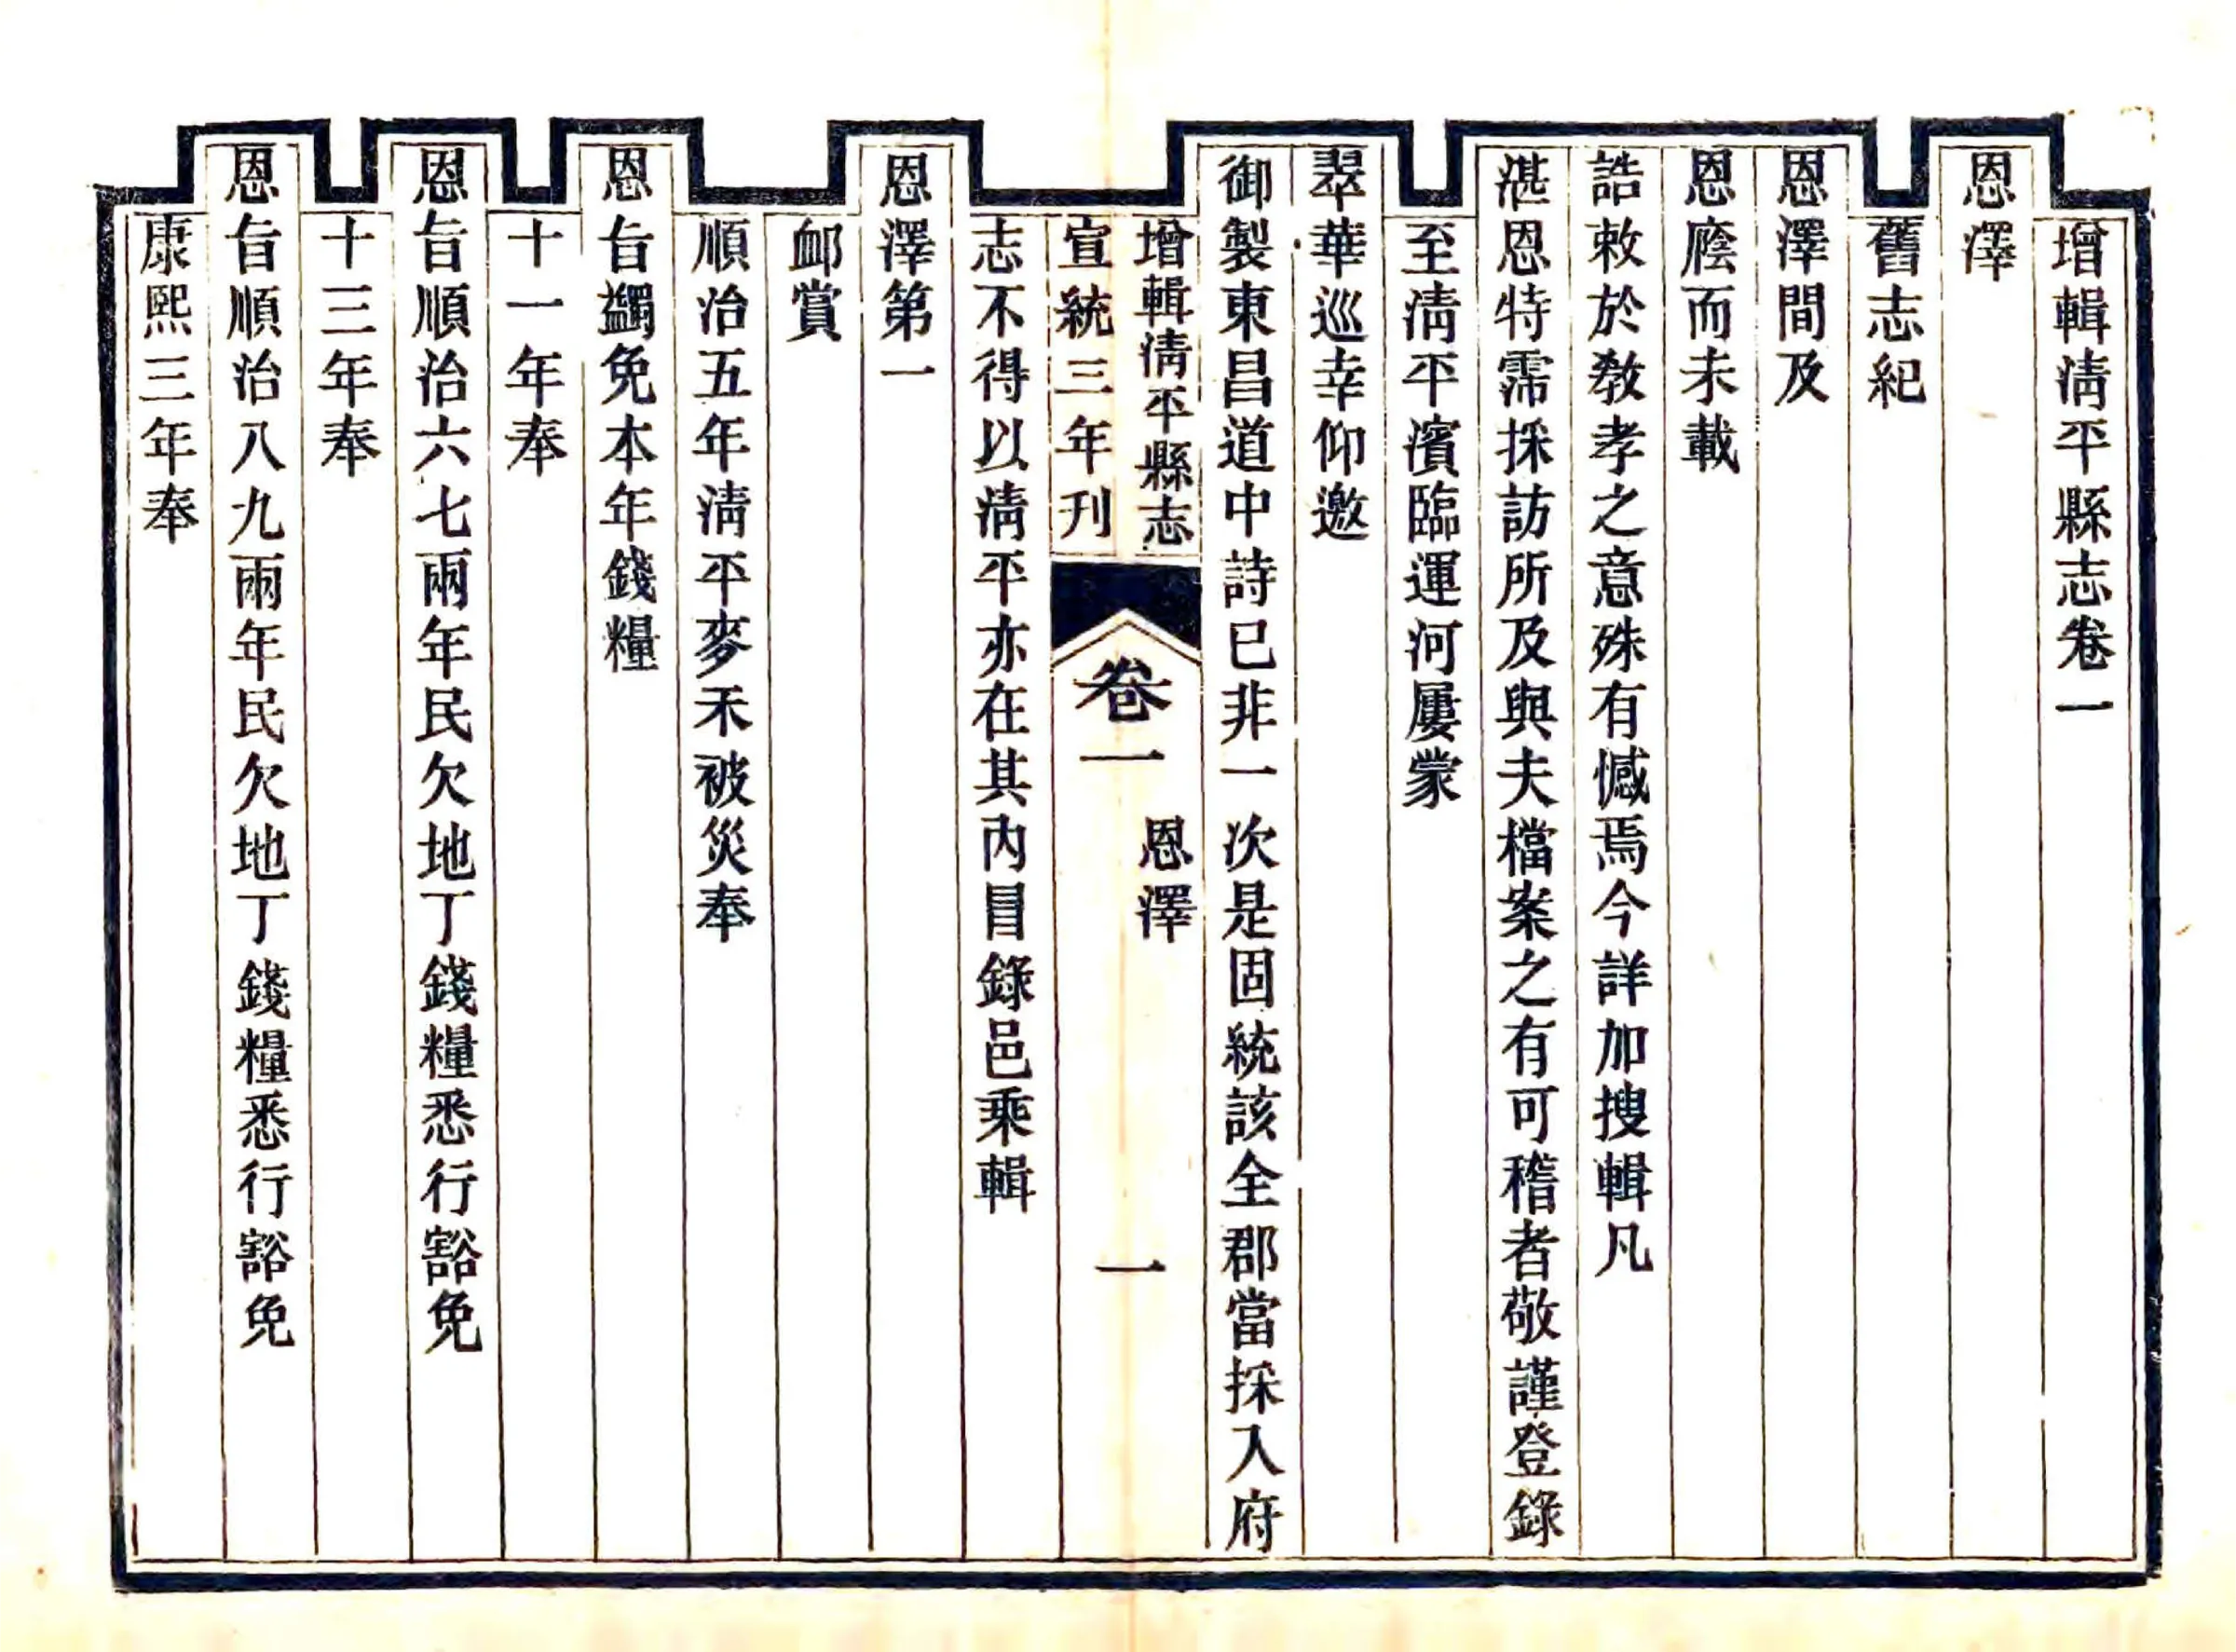 增輯淸平縣志卷一
恩澤
舊志紀
恩澤間及
恩廕而未載
誥敕於敎孝之意殊有憾焉今詳加搜輯凡
湛恩特霈採訪所及與夫檔案之有可稽者敬謹登錄
至淸平濱臨運河屢蒙
翠華巡幸仰邀
御製東昌道中詩已非一次是固統該全郡當採入府
增輯淸平縣志
宣統三年刊
卷一
恩澤
一
志不得以淸平亦在其內冒錄邑乘輯
恩澤第一
卹賞
順治五年淸平麥禾被災奉
恩旨蠲免本年錢糧
十一年奉
恩旨順治六七兩年民欠地丁錢糧悉行豁免
十三年奉
恩旨順治八九兩年民欠地丁錢糧悉行豁免
康熙三年奉